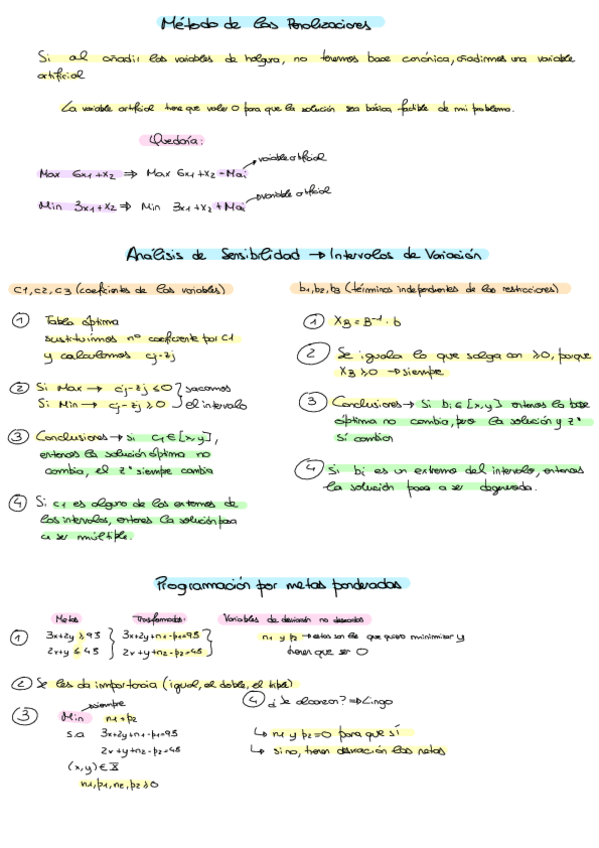 Método de las Penalizaciones
Si al añadir las variables de holgura, no tenemos base canónica, añadirmos una variable
artificial
La variable artificial tiene que valer 0 para que la solución sea básica factible de mi problema.
Quedaría:
variable artificial
Max 6x1+x2 ⇒ Max 6x1+x2 -Mai
variable artificial
Min 3x1+x2 ⇒ Min 3x1+x2 +Mai
Análisis de Sensibilidad → Intervalos de Variación
c1,c2,c3 (coeficientes de las variables)
① Tabla óptima
sustituimos nº coeficiente por c1
y calculamos cj-zj
② Si Max → cj-zj ≤0 } sacamos
Si Min → cj-zj ≥0 } el intervalo
③ Conclusiones → si c1∈[x,y],
entonces la solución óptima no
cambia, el z* siempre cambia
④ Si c1 es alguno de los extremos de
los intervalos, entonces la solución pasa
a ser múltiple.
b1,b2,b3 (términos independientes de las restricciones)
① XB=B⁻¹·b
② Se iguala lo que salga con ≥0, porque
XB ≥0 → siempre
③ Conclusiones → Si bi∈[x,y] entonces la base
óptima no cambia, pero la solución y z*
sí cambian
④ Si bi es un extremo del intervalo, entonces
la solución pasa a ser degenerada.
Programación por metas ponderadas
Metas Transformadas: Variables de desviación no deseadas
① 3x+2y ≥95 } 3x+2y+n1-p1=95 } n1 y p2 → estas son las que quiero minimizar y
2x+y ≤ 45 } 2x+y+n2-p2=45 } tienen que ser 0
② Se les da importancia (igual, el doble, el triple)
siempre
③ Min n1+p2
s.a 3x+2y+n1-p1=95
2x+y+n2-p2=45
(x,y)∈X
n1,p1,n2,p2≥0
④ ¿Se alcanzan? ⇒ Lingo
↳ n1 y p2=0 para que sí
↳ si no, tienen desviación las metas